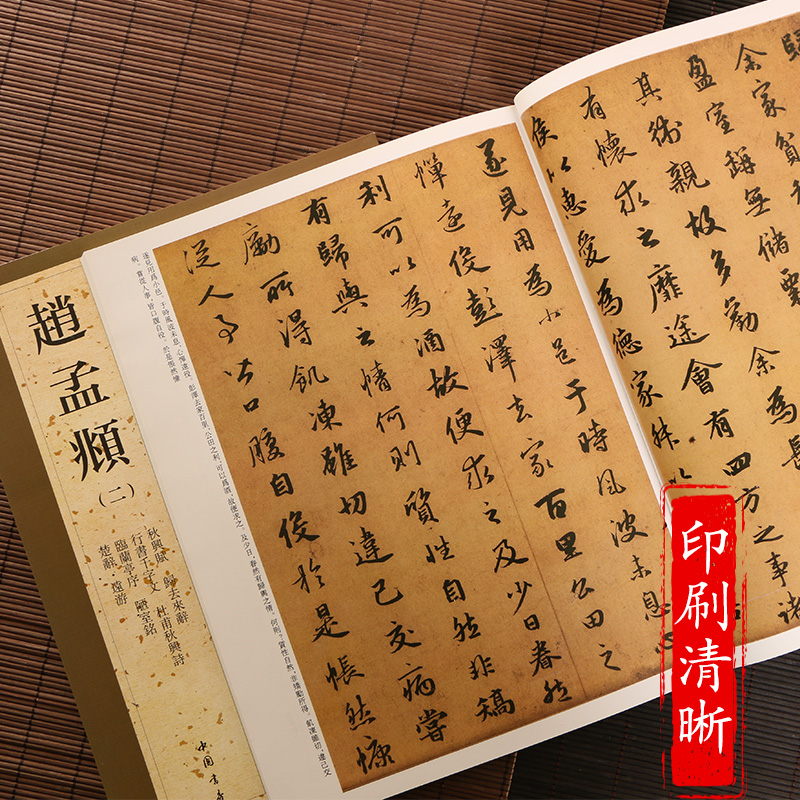 歸
余家貧
盈室缾無儲粟
其術親故多勸余為長
有懷求之靡途會有四方之事諸
侯以惠愛為德家叔以
遂見用為小邑于時風波未息心
憚遠役彭澤去家百里公田之
利可以為酒故便求之及少日眷然
有歸與之情何則質性自然非矯
勵所得飢凍雖切違己交病嘗
從人事皆口腹自役於是悵然慷
遂見用爲小邑。于時風波未息,心憚遠役,彭澤去家百里,公田之利,可以爲酒,故便求之。及少日,眷然有歸與之情。何則?質性自然,非矯勵所得,飢凍雖切,違己交
病。嘗從人事,皆口腹自役。於是悵然慷
趙孟頫
(二)
秋興賦 歸去來辭
行書千字文 杜甫秋興詩
臨蘭亭序 陋室銘
楚辭·遠游
中國書
印刷清晰